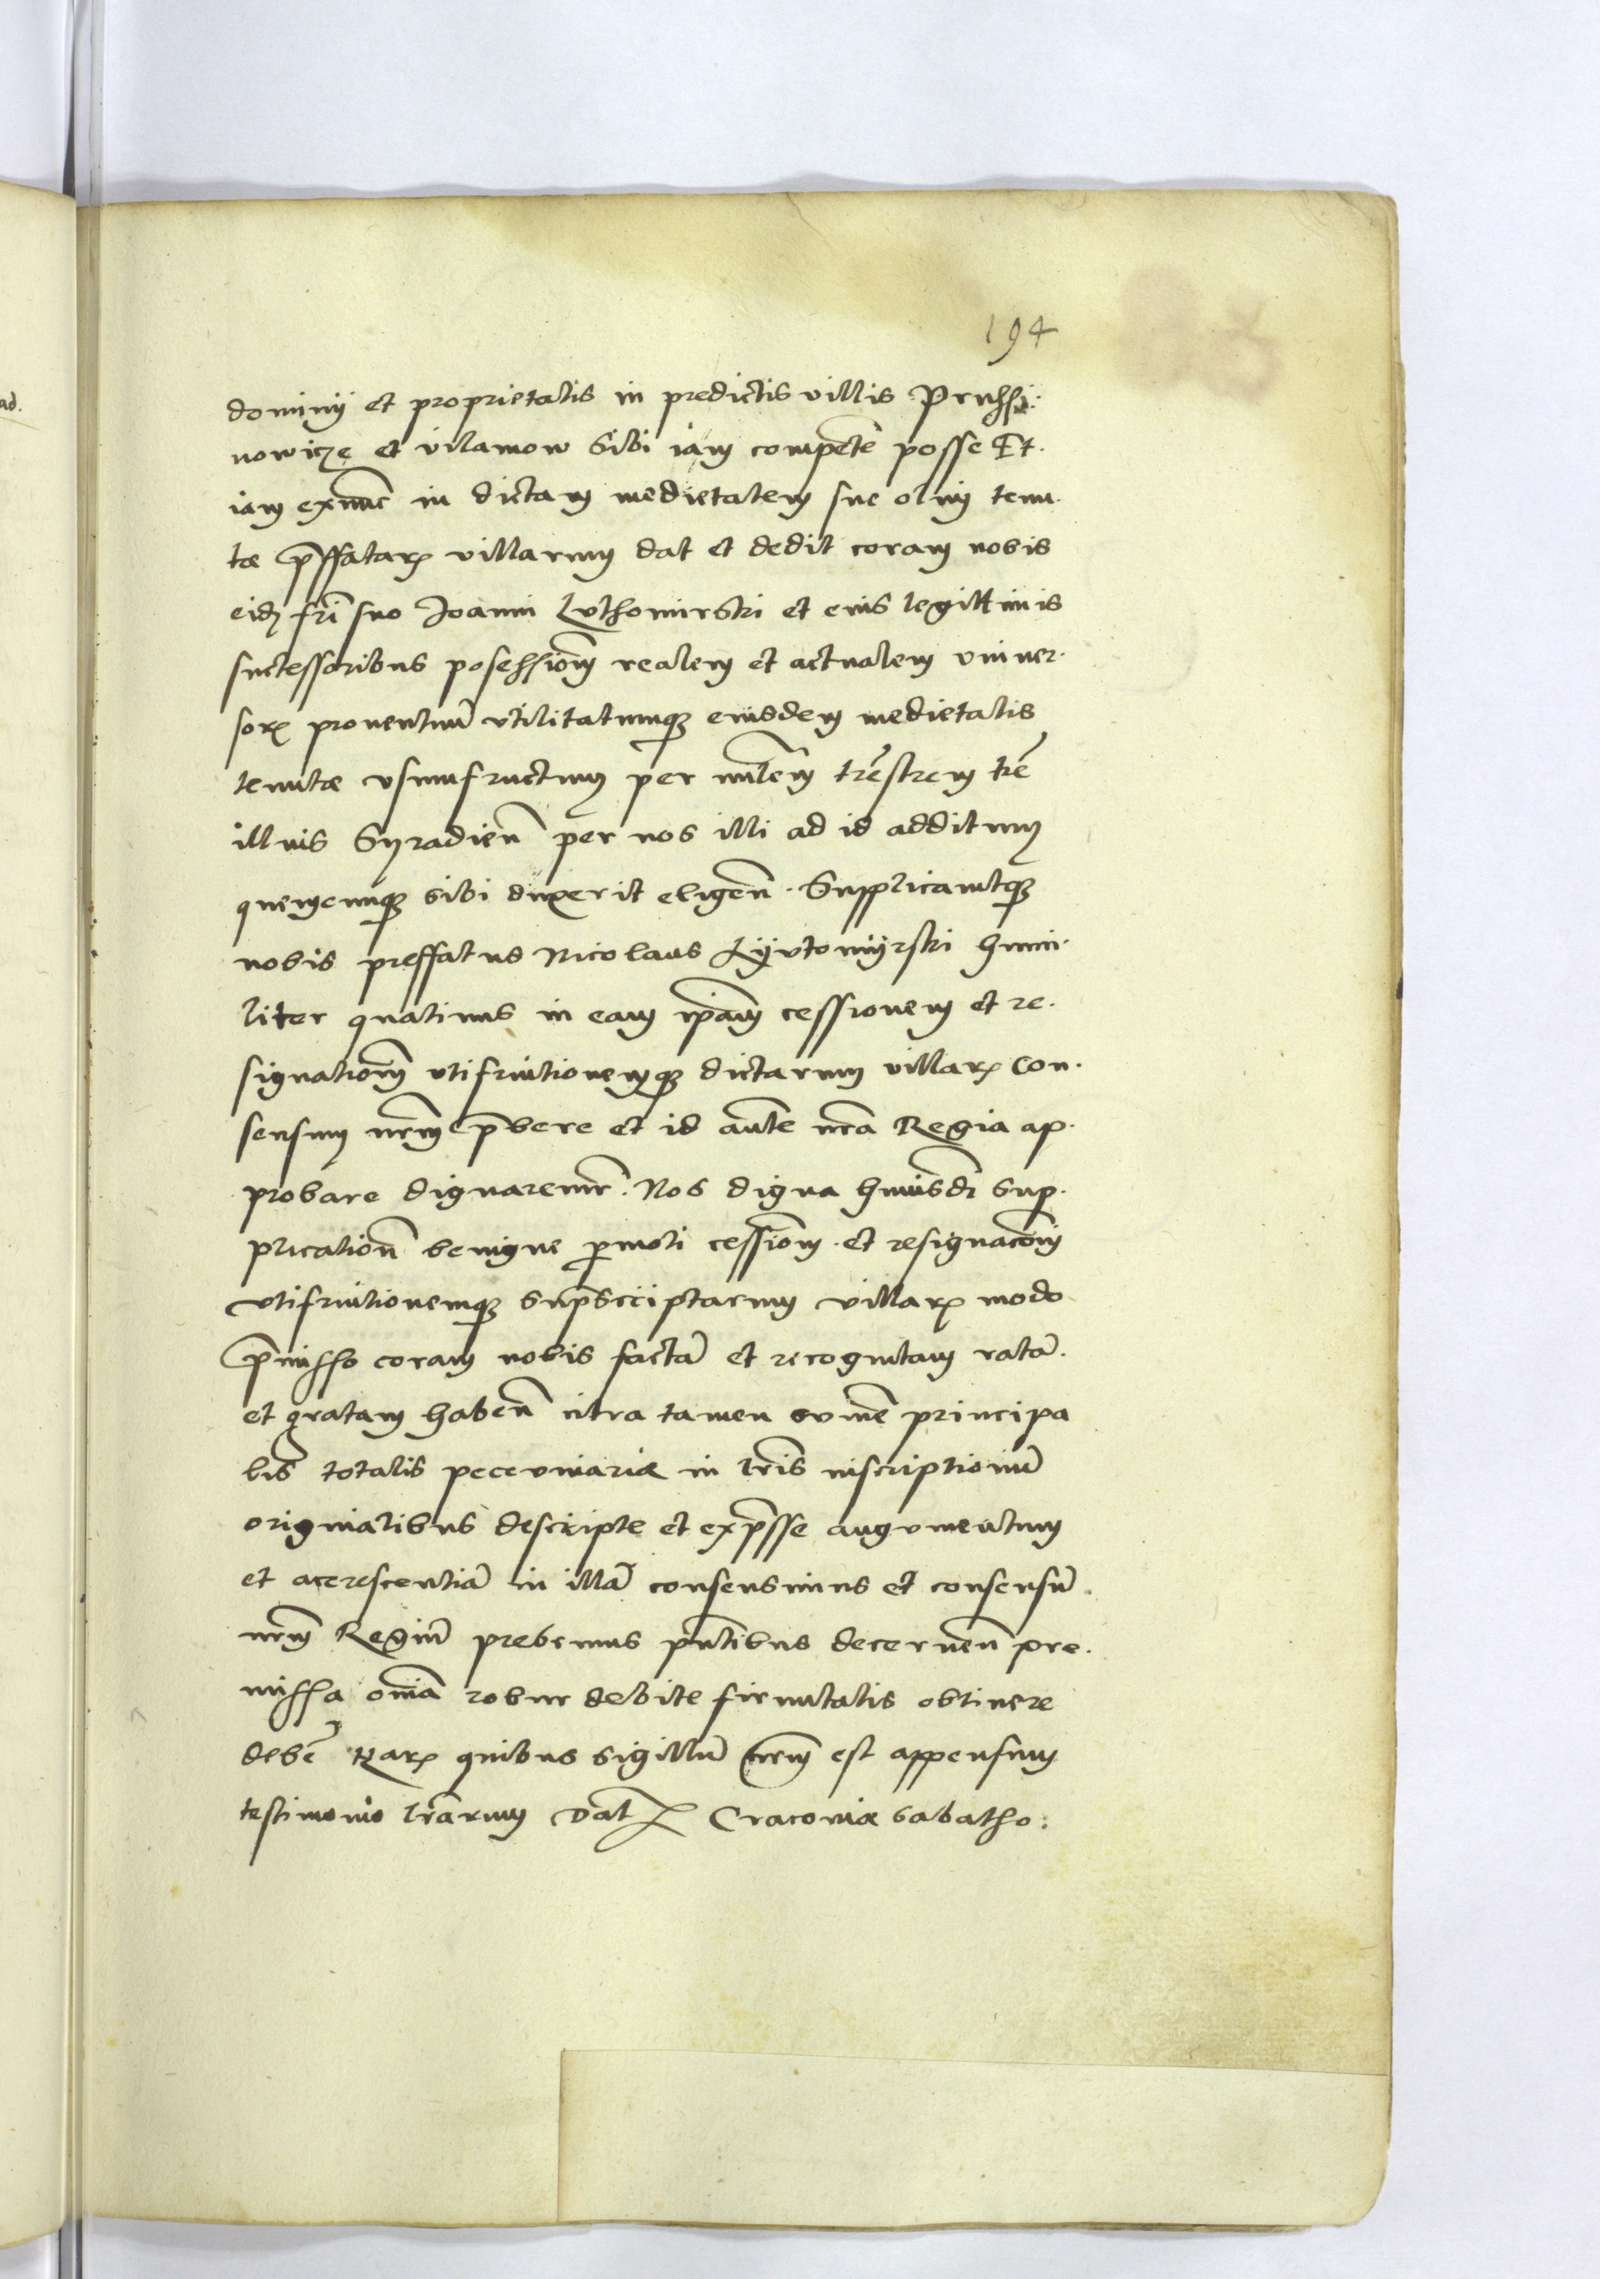 194
dominij et proprietatis in predictis villis Prussi:
nowicze et vilamow sibi iam competẽ posse Et
iam exnunc in dictam medietatem sue olim tenu
tæ p̃ffatarꝝ villarum dat et dedit coram nobis
eidẽ fr̃i suo Joanni Luthomirski et eius legittimis
successoribus posessionẽm realem et actualem univer
sorꝝ proventuũ utilitatumqꝫ eiusdem medietatis
tenutæ usumfructum per miñlem terrẽstrem trẽ
illius Syradieñ per nos illi ad id additum
quemcumqꝫ sibi duxerit eligeñ. Supplicavitqꝫ
nobis preffatus Nicolaus Lyvtomyrski humi
liter quatinus in eam ip̃am cessionem et re
signationẽm utifruitionemqꝫ dictarum villarꝝ Con
sensum nr̃m p̃bere et id auctẽ nr̃a Regia ap
probare dignaremur̃. Nos digna huiusdĩ sup
plicationẽ benigne p̱moti cessionẽm et resignacionẽm
utifruitionemqꝫ sup̃scriptarum villarꝝ modo
p̃misso coram nobis factã et recognitam ratã
et gratam habeñ citra tamen summẽ principa
lis totalis pecuniariæ in lr̃is inscriptionum̃
originalibus descripte et exp̃sse augumentum
et accrescentiã in illã consensimus et consensũ
nr̃m Regiũ prebemus p̃ntibus decerneñ pre
missa om̃ia robur debite firmitatis obtinere
deberẽ Harꝝ quibus sigillũ nr̃m est appensum
testimonio lr̃arum Dat̃ Cracoviæ sabatho:
ad.